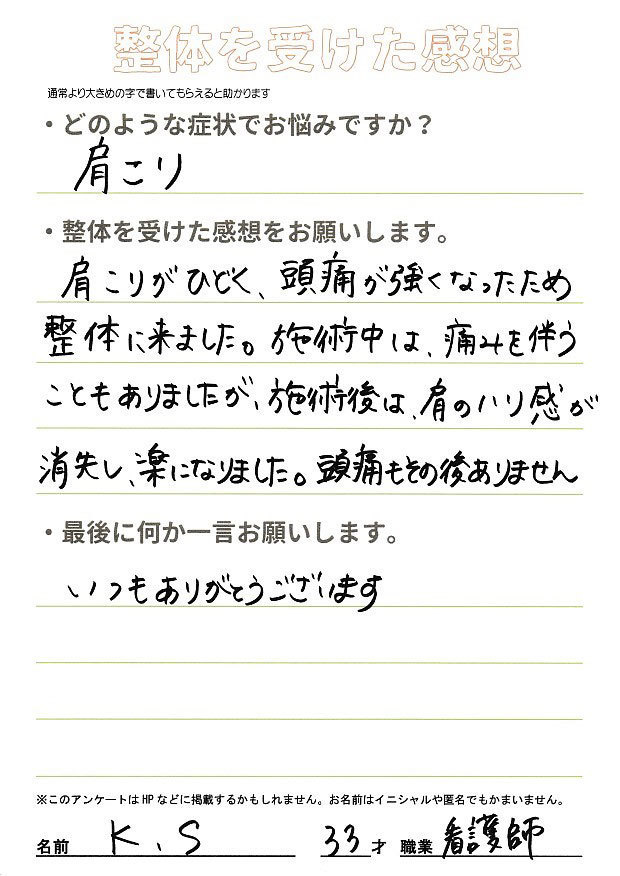 整体を受けた感想
通常より大きめの字で書いてもらえると助かります
・どのような症状でお悩みですか？
肩こり
・整体を受けた感想をお願いします。
肩こりがひどく、頭痛が強くなったため
整体に来ました。施術中は、痛みを伴う
こともありましたが、施術後は、肩のハリ感が
消失し、楽になりました。頭痛もその後ありません
・最後に何か一言お願いします。
いつもありがとうございます
※このアンケートはHPなどに掲載するかもしれません。お名前はイニシャルや匿名でもかまいません。
名前 K.S 33才 職業 看護師